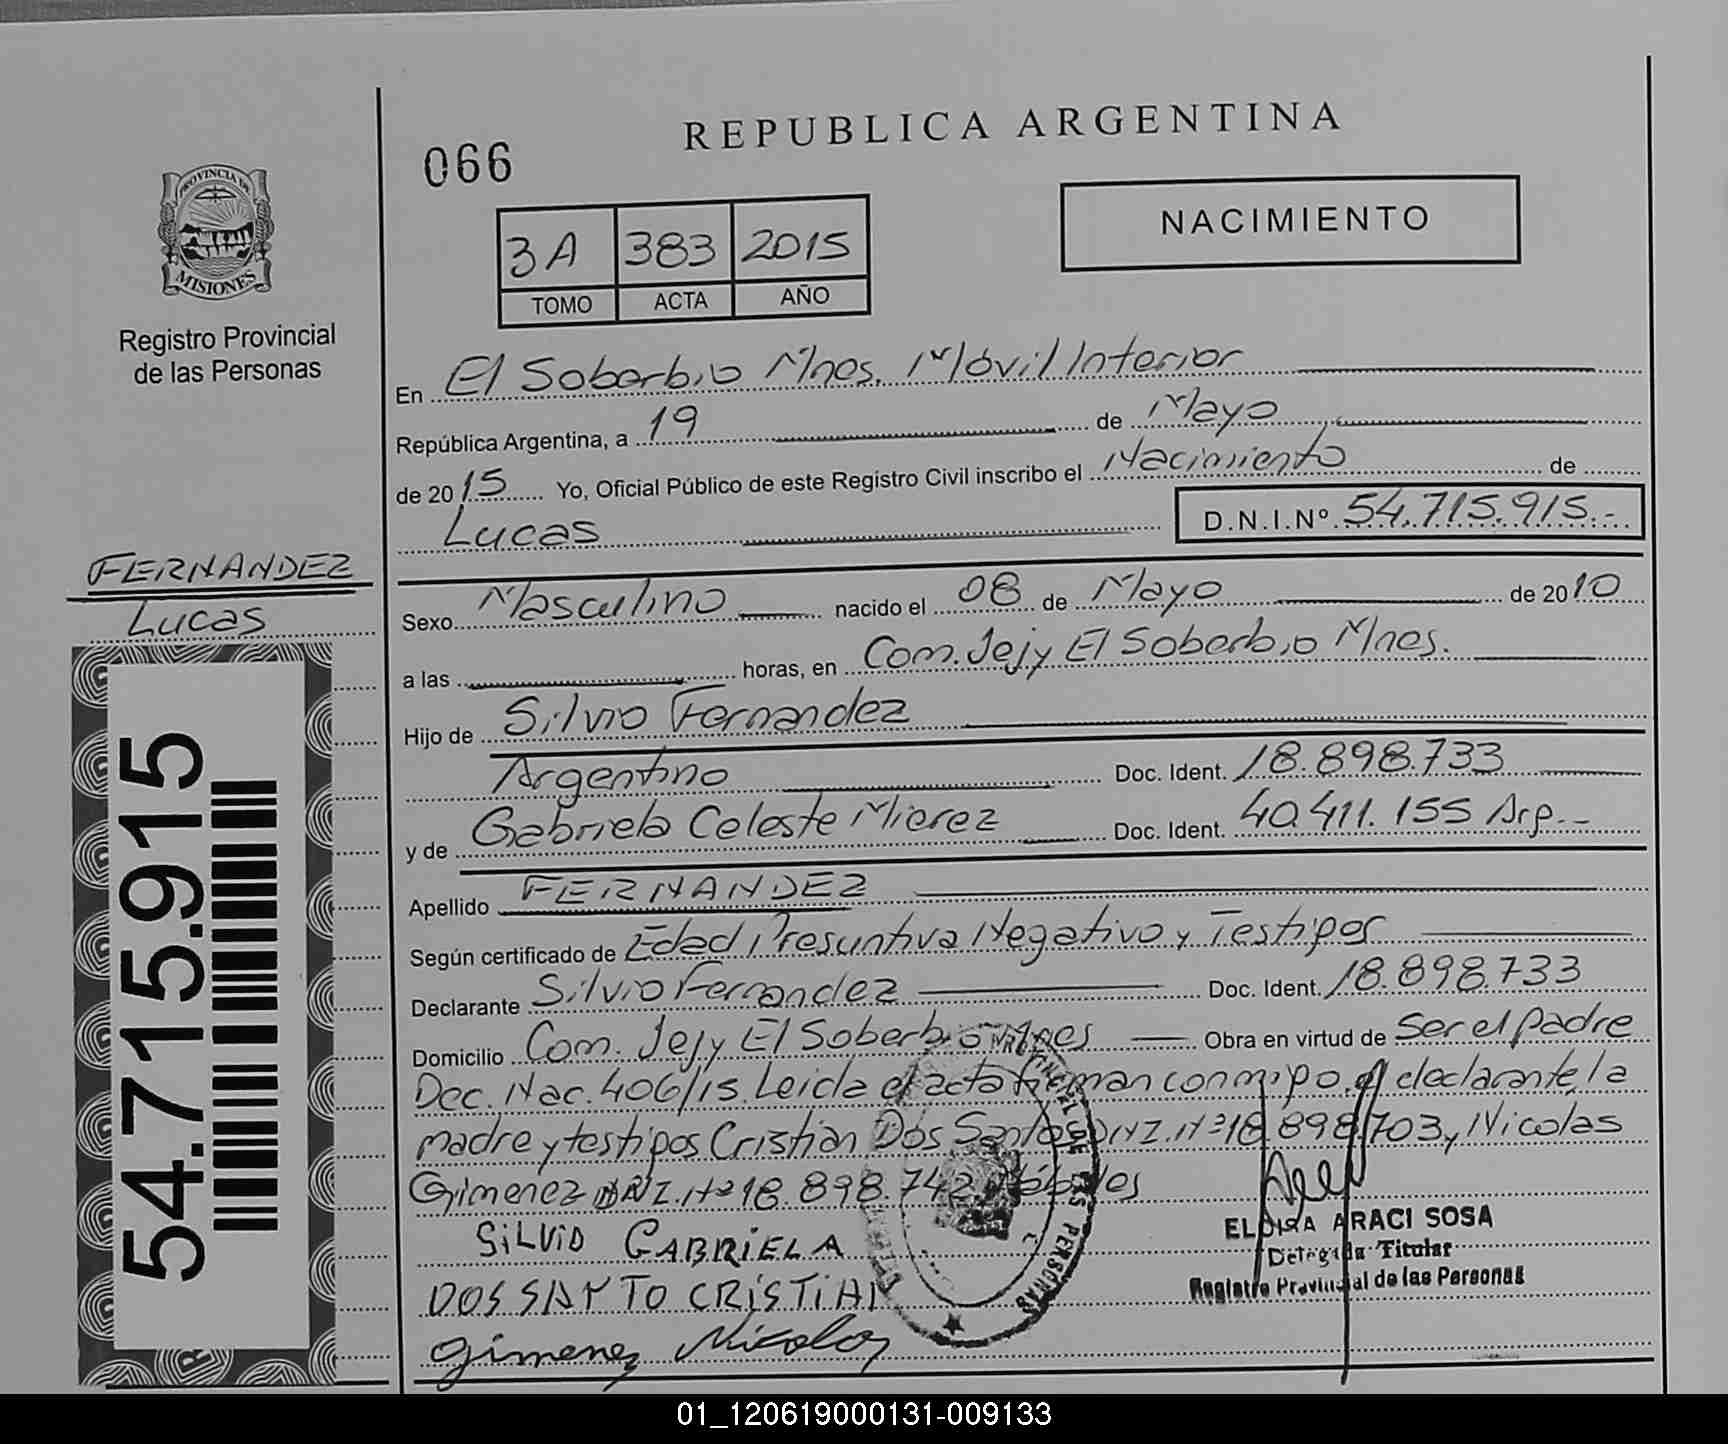 REPUBLICA ARGENTINA
066
NACIMIENTO
3A 383 2015
TOMO ACTA AÑO
PROVINCIA DE
MISIONES
Registro Provincial
de las Personas
En El Soberbio Mnes. Móvil Interior
República Argentina, a 19 de Mayo
de 2015 Yo, Oficial Público de este Registro Civil inscribo el Nacimiento de
Lucas D.N.I.Nº 54.715.915.-
FERNANDEZ
Lucas
Sexo Masculino nacido el 08 de Mayo de 2010
a las horas, en Com. Jejy El Soberbio Mnes.
Hijo de Silvio Fernandez
Argentino Doc. Ident. 18.898.733
y de Gabriela Celeste Mierez Doc. Ident. 40.411.155 Arg.--
Apellido FERNANDEZ
Según certificado de Edad Presuntiva Negativo y Testigos
Declarante Silvio Fernandez Doc. Ident. 18.898.733
Domicilio Com. Jejy El Soberbio Mnes Obra en virtud de Ser el padre
Dec. Nac. 406/15. Leida el acta firman conmigo, el declarante, la
madre y testigos Cristian Dos Santos DNI.Nº 18.898.703, y Nicolas
Gimenez DNI.Nº 18.898.742
SiLViO GABRiELA
DOS SANTO CRiSTiAN
Gimenez Nicolas
ELOISA ARACI SOSA
Delegada Titular
Registro Provincial de las Personas
54.715.915
01_120619000131-009133